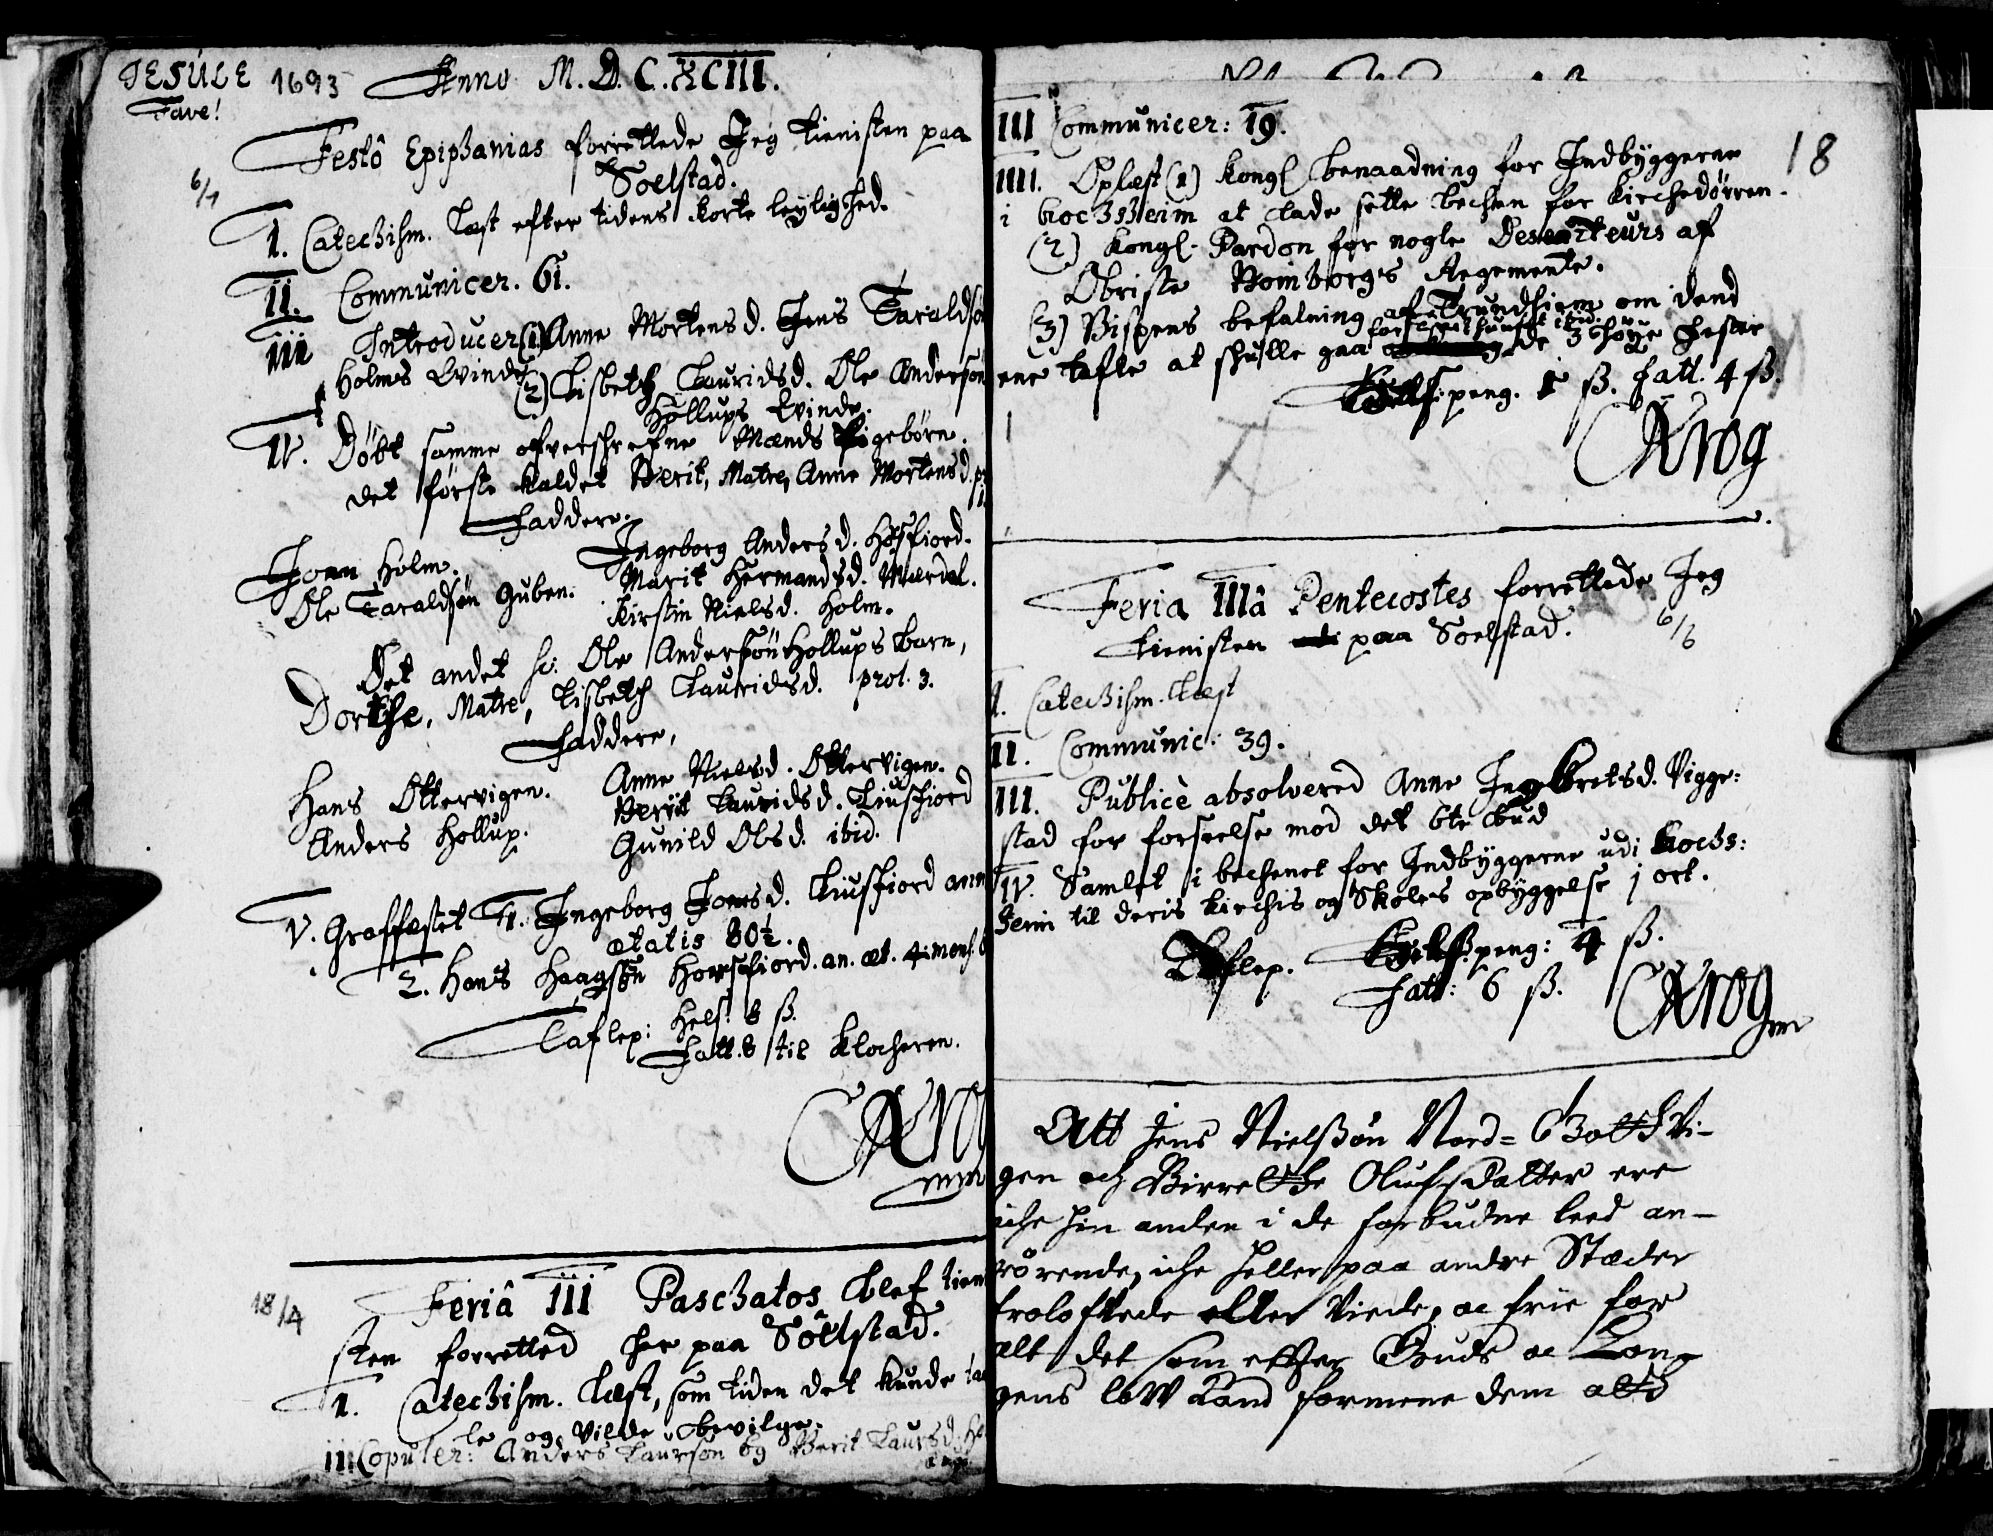 JESULE 1693 Anno M.D.C.XCIII.
Fave!
Festô Epiphanias forrettede Jeg tienisten paa
6/1
Soelstad.
I. Catechism. læst efter tidens korte leylighed.
II. Communicer. 61.
III Introducer (1) Anne Mortensd. Jens Taraldsøn
Holms Qvinde
(2) Lisbeth Lauridsd. Ole Andersøn
Hollups Qvinde.
IV. Døbt samme ofverschrefne Mænds Pigebørn.
det første kaldet Berit, Matre, Anne Mortensd.
Faddere.
Joen Holm. Ingeborg Andersd. Hosfiord.
Ole Taraldsøn Guben. Marit Hermandsd. Mærdal.
Kirstin Nielsd. Holm.
Det andet sc: Ole Andersøn Hollups barn,
Dorthe, Matre, Lisbeth Lauridsd. prol. 3.
Faddere,
Hans Ottervigen. Anne Nielsd. Ottervigen.
Anders Hollup. Berit Lauridsd. Liusfiord
Gunild Olsd. ibid.
V. Graffæstet 1. Ingeborg Joensd. Liusfiord
ætatis 80½.
2. Hans Haagsøn Horsfiord. an. æt. 4 mens.
Taflep: Hels: 8 ß.
Fatt. 8 til Klocheren.
Krog
mm
18/4
Feriâ III Paschatos blef tieni
sten forretted her paa Söelstad.
I. Catechism. læst, som tiden det kunde
le og vilde bevilge.
II Copuler: Anders Laursøn og Berit Laursd.
18
III Communicer: 19.
IIII. Oplæst (1) Kongl benaadning for Indbyggerne
i Kochsheim at lade sette bechen for kirchedørren.
(2) Kongl. Pardon for nogle Deserteurs af
Obriste Regemente.
(3) Bispens befalning af Trundhiem om dend
ene tafle at schulle gaa for de 3 høye Fester
Helsf: peng. 1 ß. Fatt. 4 ß.
Krog
Feria IIIâ Pentecostes forrettede Jeg
tienisten paa Soelstad.
6/6
I. Catechism. læst
II. Communic: 39.
III. Publicè absolvered Anne Ingebretsd. Vigge:
stad for forseelse mod det 6te bud
IV. Samlet i bechenet for Indbyggerne udi Kochs:
heim til deris kirchis og Skoles opbyggelse 1 ort.
Taflep. Helsf: peng: 4 ß.
Fatt: 6 ß.
Krog
mm
Att Jens Nielßøn Nord=
gen och Birrethe Olufsdatter ere
iche hin anden i de forbudne leed an-
rörende, iche heller paa andre Stæder
troloftede eller Viede, oc frie for
alt det som efter Guds oc Kon
gens low kand formene dem att